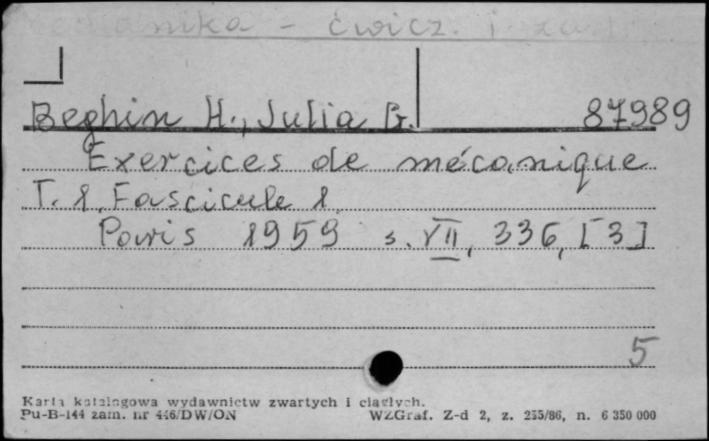 Mechanika - ćwicz. i zad.
Beghin H., Julia G. 87989
Exercices de mécanique
T. 1. Fascicule 1.
Paris 1959 s. VII, 336, [3]
5
Karta katalogowa wydawnictw zwartych i ciągłych.
Pu-B-144 zam. nr 446/DW/ON WZGraf. Z-d 2, z. 255/86, n. 6 350 000